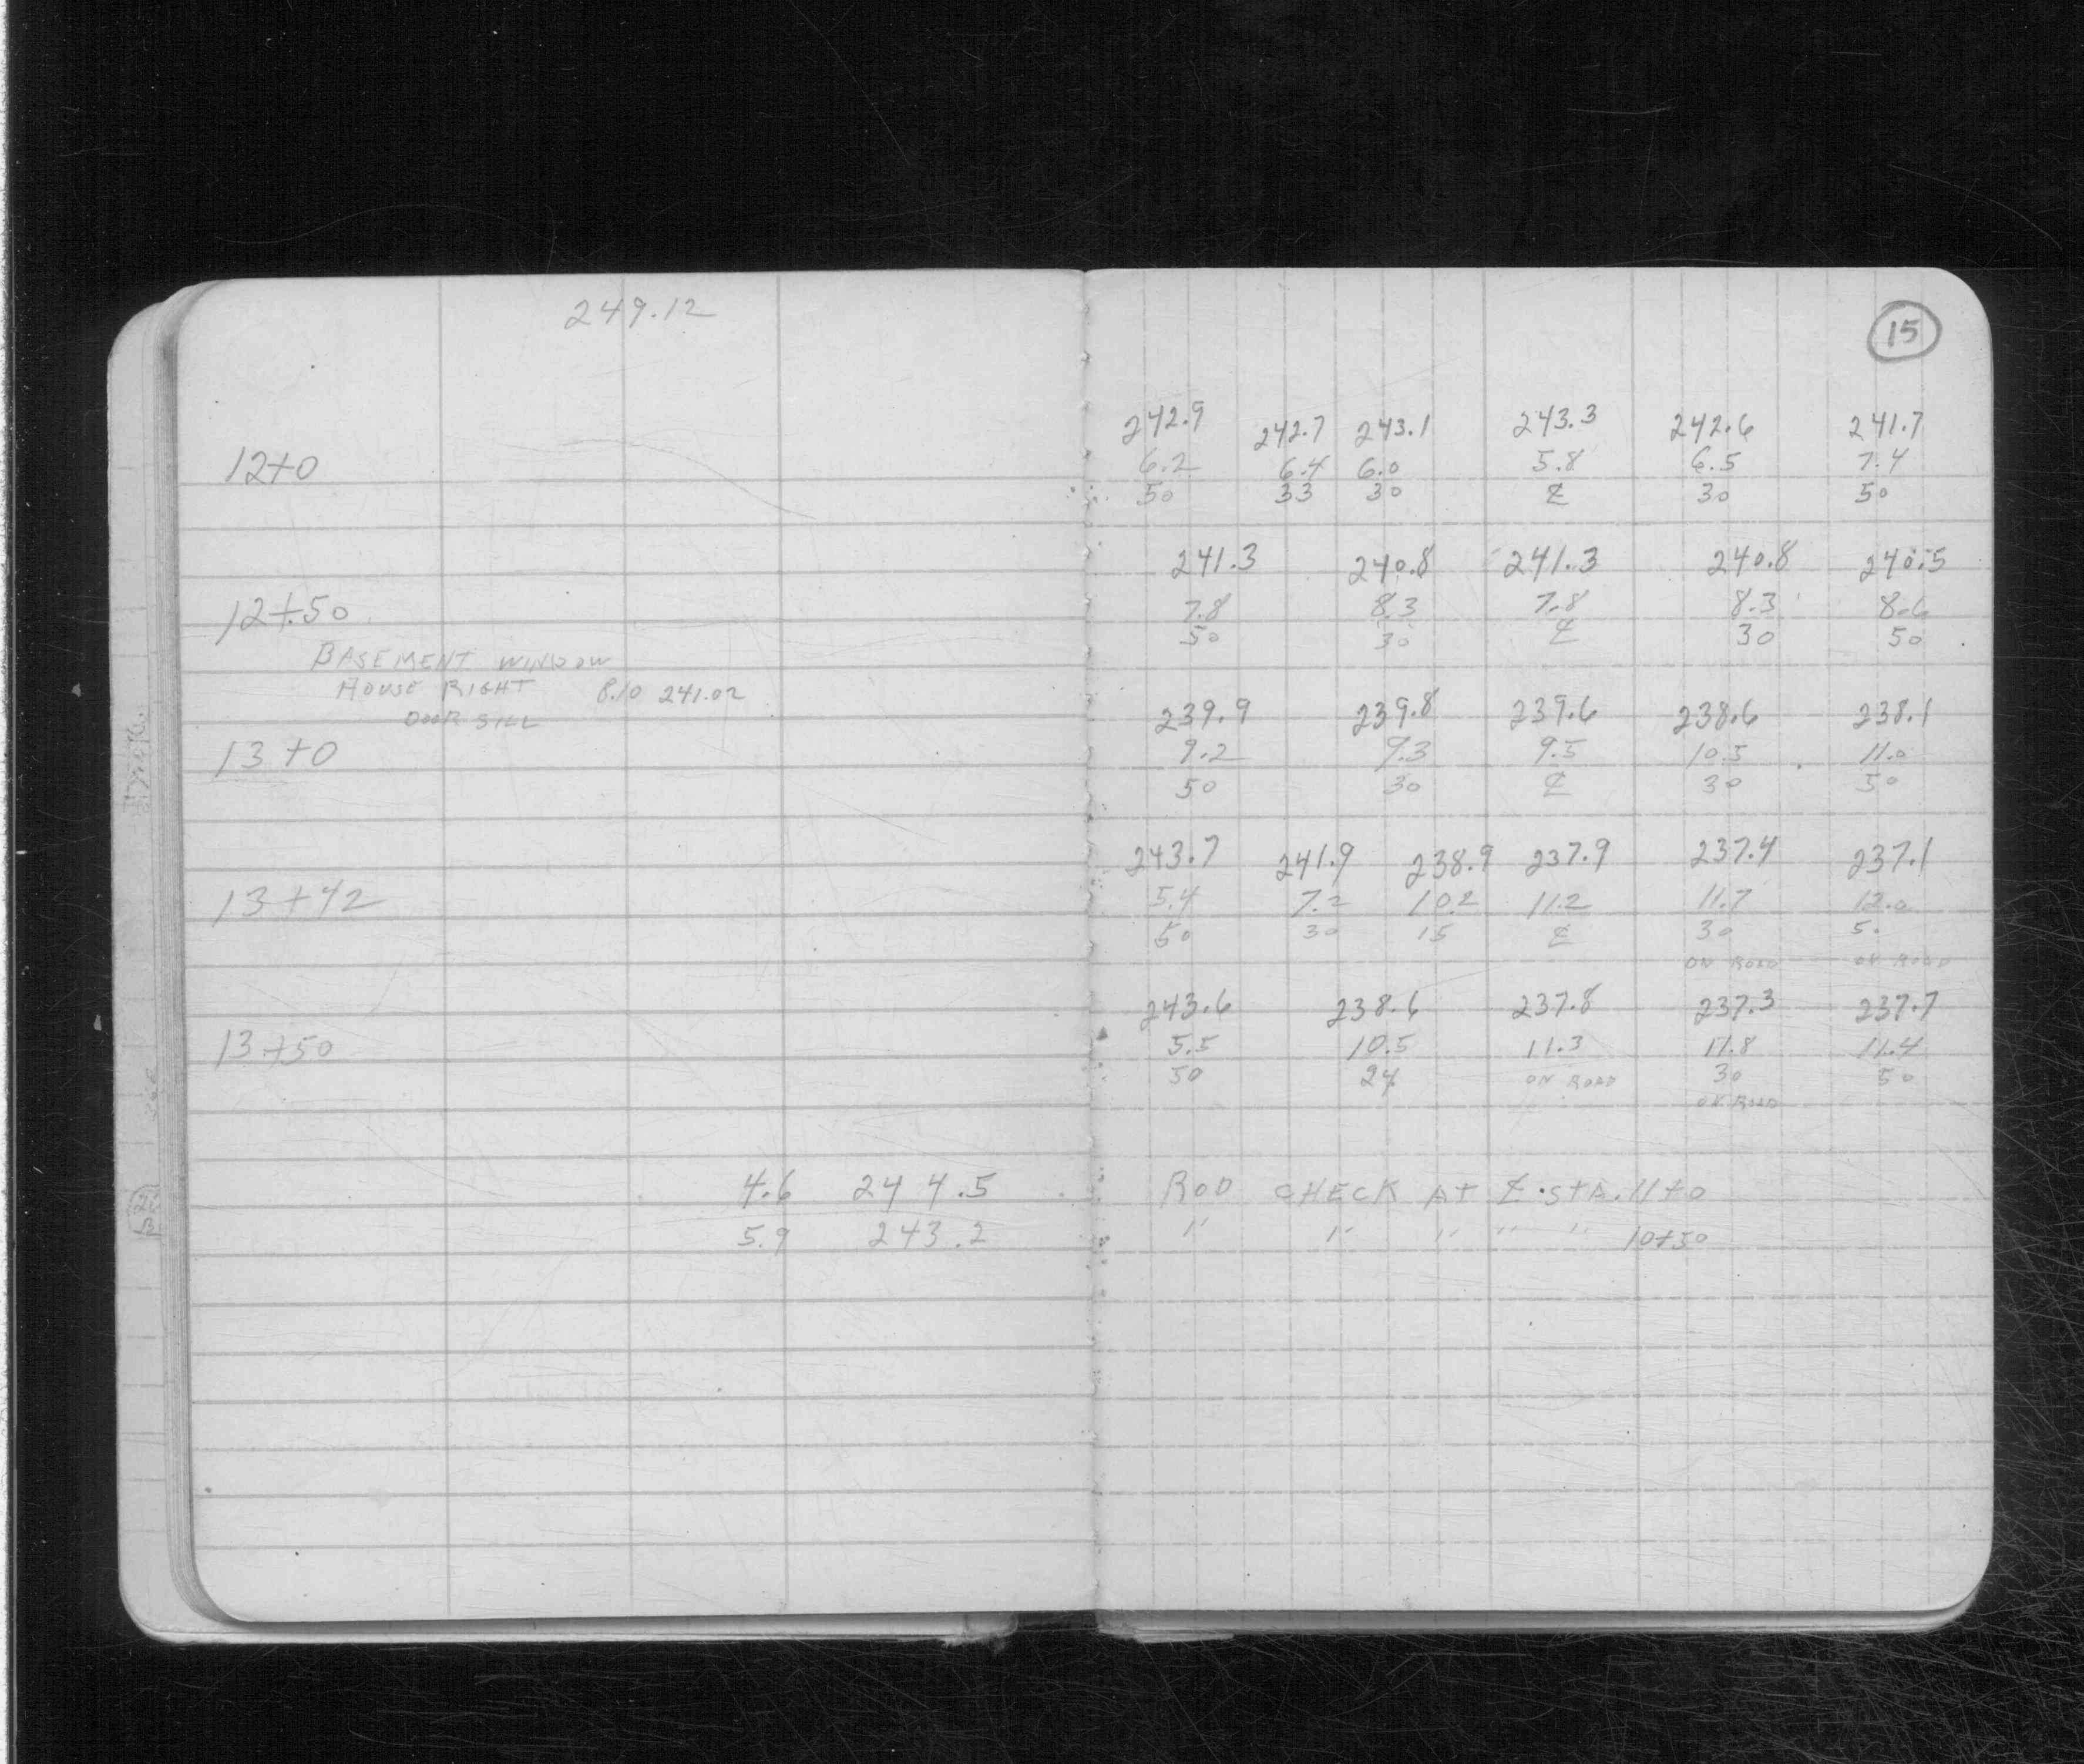 249.12
15
242.9 242.7 243.1 243.3 242.6 241.7
12+0 6.2 6.4 6.0 5.8 6.5 7.4
50 33 30 ℄ 30 50
241.3 240.8 241.3 240.8 240.5
12+50 7.8 8.3 7.8 8.3 8.6
50 30 ℄ 30 50
BASEMENT WINDOW
HOUSE RIGHT 8.10 241.02
DOOR SILL
239.9 239.8 239.6 238.6 238.1
13+0 9.2 9.3 9.5 10.5 11.0
50 30 ℄ 30 50
243.7 241.9 238.9 237.9 237.4 237.1
13+42 5.4 7.2 10.2 11.2 11.7 12.0
50 30 15 ℄ 30 50
ON ROAD ON ROAD
243.6 238.6 237.8 237.3 237.7
13+50 5.5 10.5 11.3 11.8 11.4
50 24 ON ROAD 30 50
ON ROAD
4.6 244.5 ROD CHECK AT ℄ STA. 11+0
5.9 243.2 " " " " " 10+50